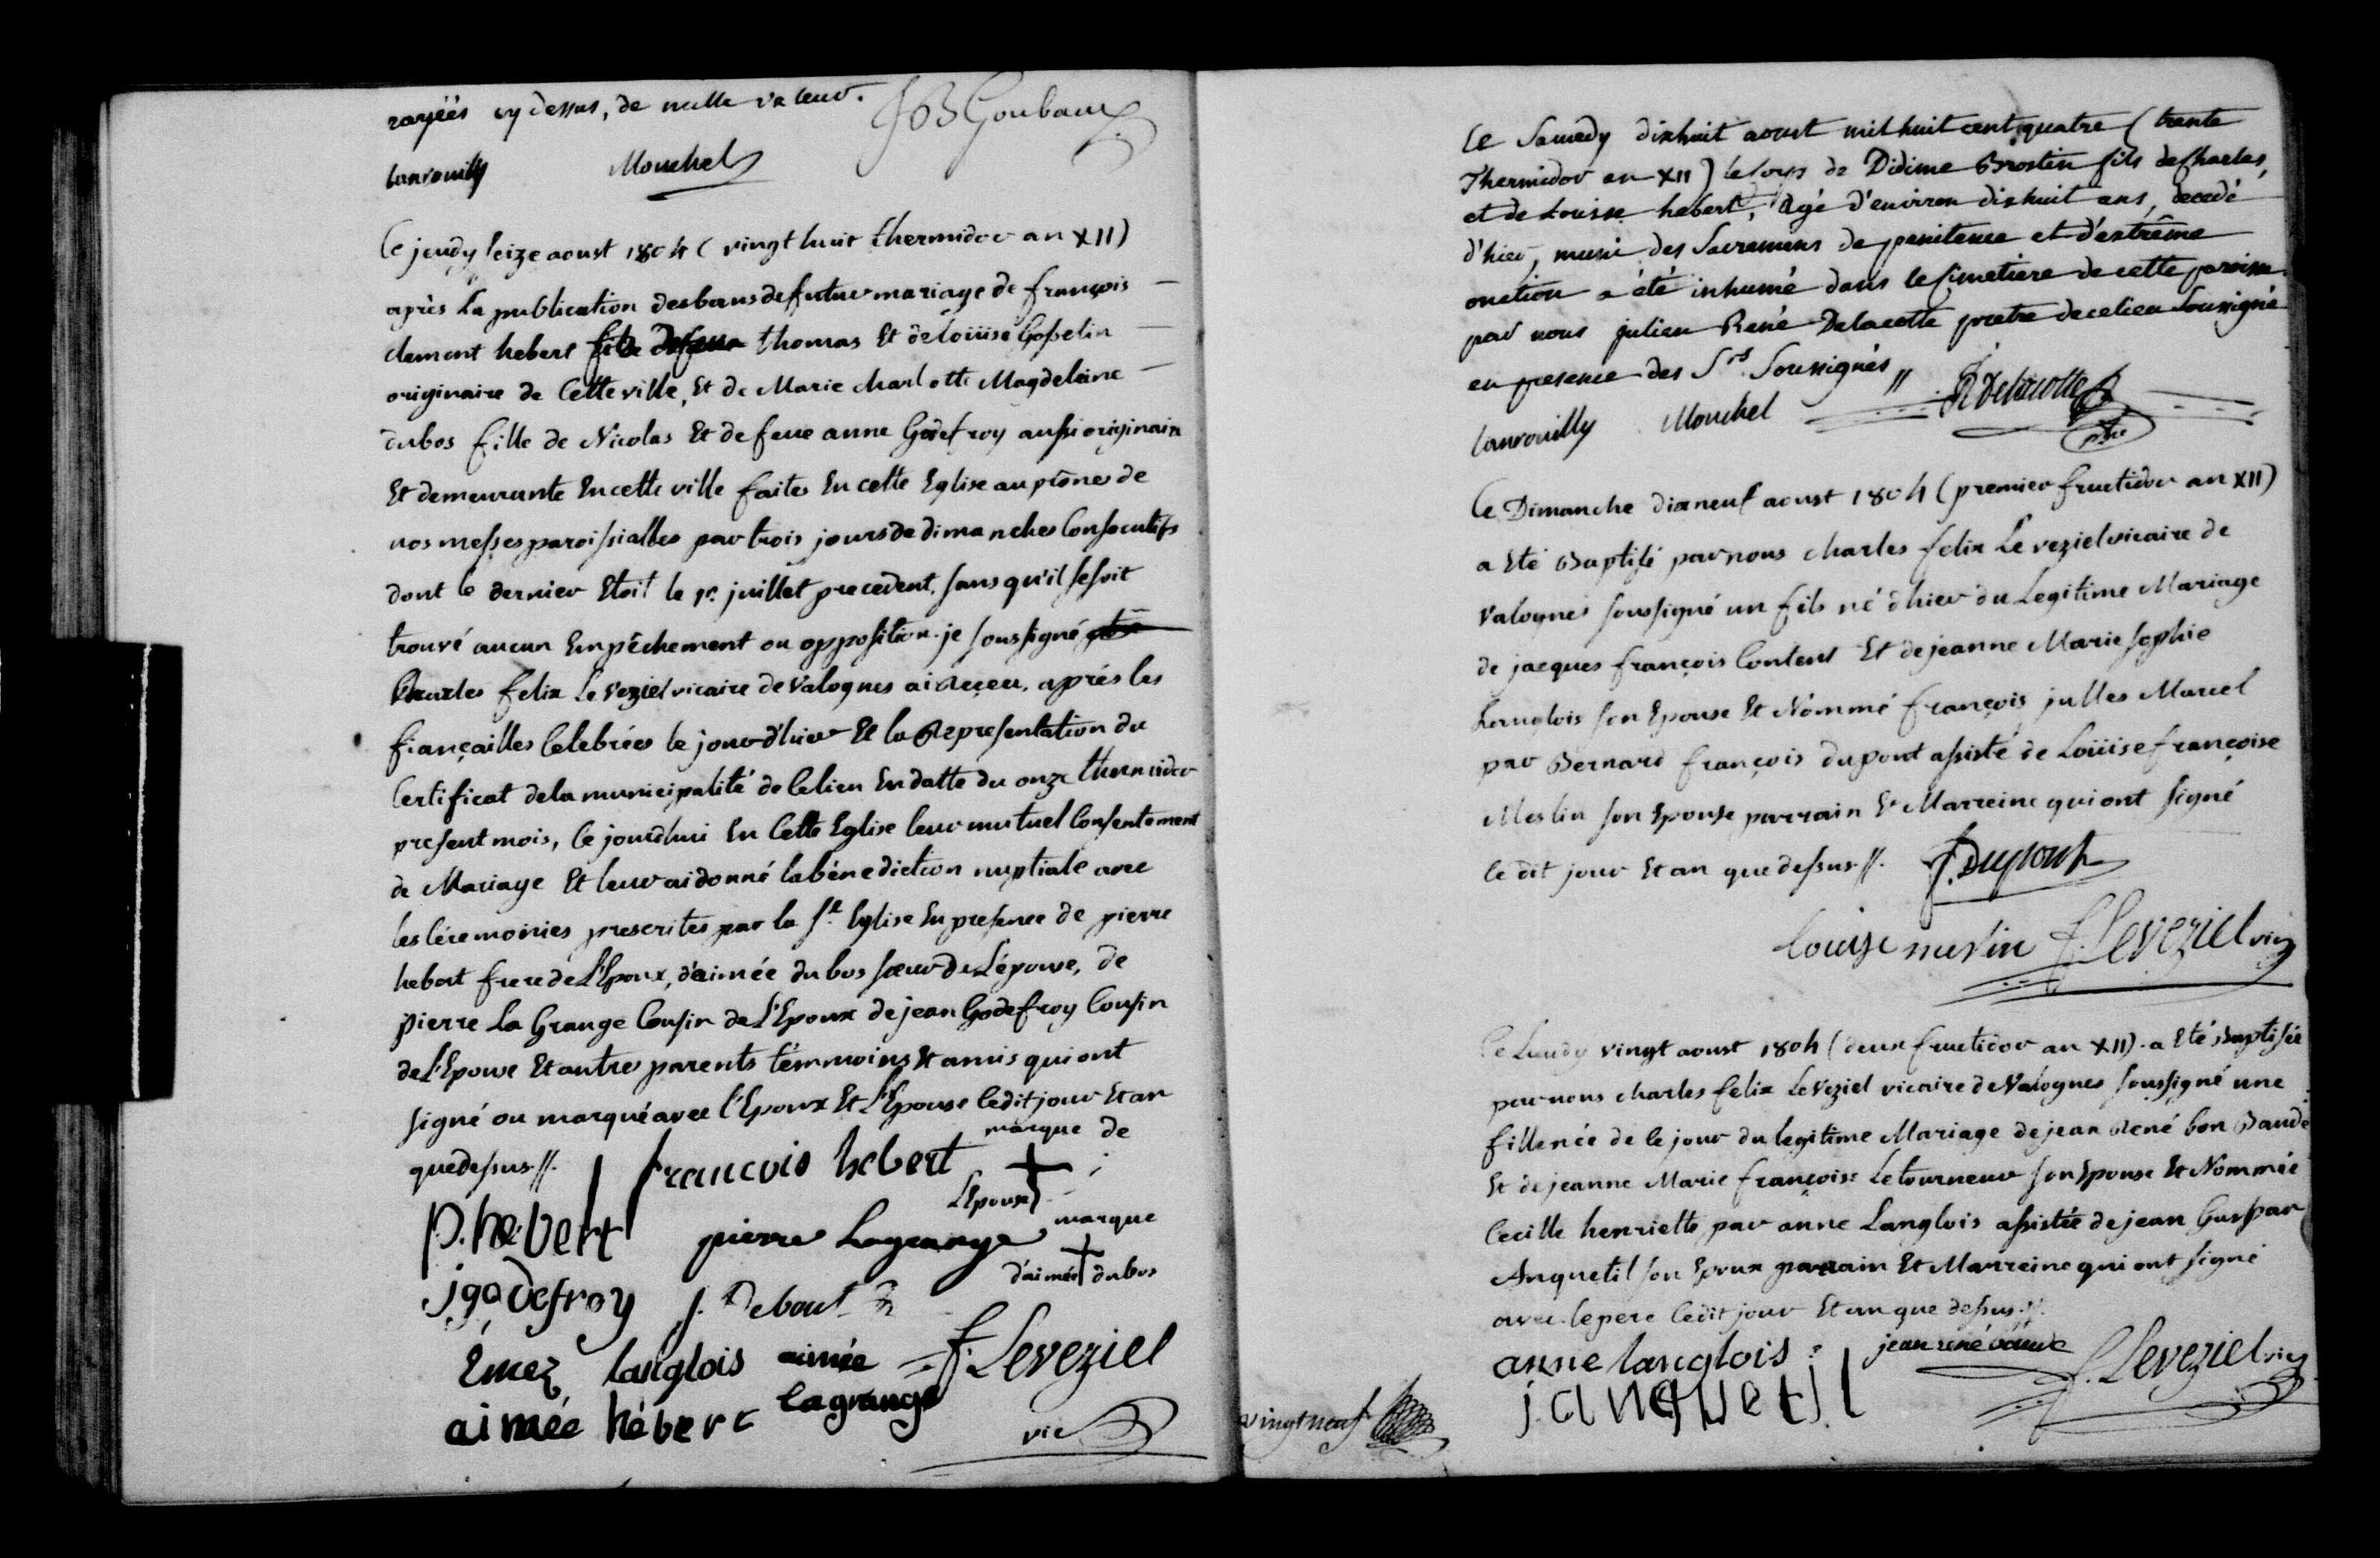 rayéés cy dessus, de nulle valeur. JB Goubaux
Lanrouilly Mouchel
Ce jeudy seize aoust 1804 (vingt huit thermidor an XII)
après La publication des bans de futur mariage de françois
clement hebert fils de feu thomas Et de loüise Gosselin
originaire de Cette ville, Et de Marie charlotte Magdeleine
dubos fille de Nicolas Et de feue anne Godefroy aussi originaire
Et demeurante En cette ville faites En cette Eglise au prônes de
nos messes paroissialles par trois jours de dimanches Consecutifs
dont le dernier Etoit le 1r. juillet precedent, sans qu'il se soit
trouvé aucun Empêchement ou opposition. je soussigné
Charles felix Le Veziel vicaire de Valognes ai Reçeu, aprés les
fiançailles Celebrées le jour d'hier Et la Representation du
Certificat de la municipalité de Ce lieu En datte du onze thermidor
present mois, Ce jourdhui En Cette Eglise leur mutuel Consentement
de Mariage Et leur ai donné la bénediction nuptiale avec
les Céremonies prescrites par la Ste Eglise En presence de pierre
hebert frere de L'Epoux, d'aimée dubos sœur de L'épouse, de
pierre La Grange Cousin de L'Epoux de jean Godefroy Cousin
de L'Epouse Et autres parents témmoins Et amis qui ont
signé ou marqué avec l'Epoux Et L'Epouse Ledit jour Et an
que dessus //. françois hebert marque + de
L'Epouse
P. hebert pierre Lagrange marque
+
d'aimée dubos
j godefroy J. Debout
Émez langlois aimée lagrange f. Leveziel
aimée hébert vic
Le Samedy dixhuit aoust mil huit cent quatre (trente
Thermidor an XII) le corps de Didime Brostin fils de Charles,
et de Louise hebert, Agé d'environ dixhuit ans, decedé
d'hier, muni des Sacremens de penitence et d'extrême
onction a été inhumé dans le Cimetiere de cette paroisse
par nous julien René Delacotte pretre de ce lieu Soussigné
en presence des Srs. Soussignés //
Lanrouilly Mouchel R Delacotte
ptre
Ce Dimanche dixneuf aoust 1804 (premier fructidor an XII)
a Eté Baptisé par nous charles felix Le veziel vicaire de
Valognes soussigné un fils né d'hier du Legitime Mariage
de jacques françois Content Et de jeanne Marie sophie
Langlois son Epouse Et Nommé françois julles Marcel
par Bernard françois dupont assisté de Loüise françoise
Meslin son Epouse parrain Et Marreine qui ont signé
le dit jour Et an que dessus //. f. Dupont
Louise meslin f. Leveziel vic
Ce Lundy vingt aoust 1804 (deux fructidor an XII). a Eté Baptisée
par nous charles felix Leveziel vicaire de Valognes soussigné une
fille née de le jour du legitime Mariage de jean René bon Baude
Et de jeanne Marie françoise Letourneur son Epouse Et Nommée
Cecille henriette par anne Langlois assistée de jean Gaspar
Anquetil son Epoux parrain Et Marreine qui ont signé
avec le pere Ledit jour Et an que dessus //.
anne langlois jean rené baude f. Leveziel vic
j. anquetil
vingt neuf